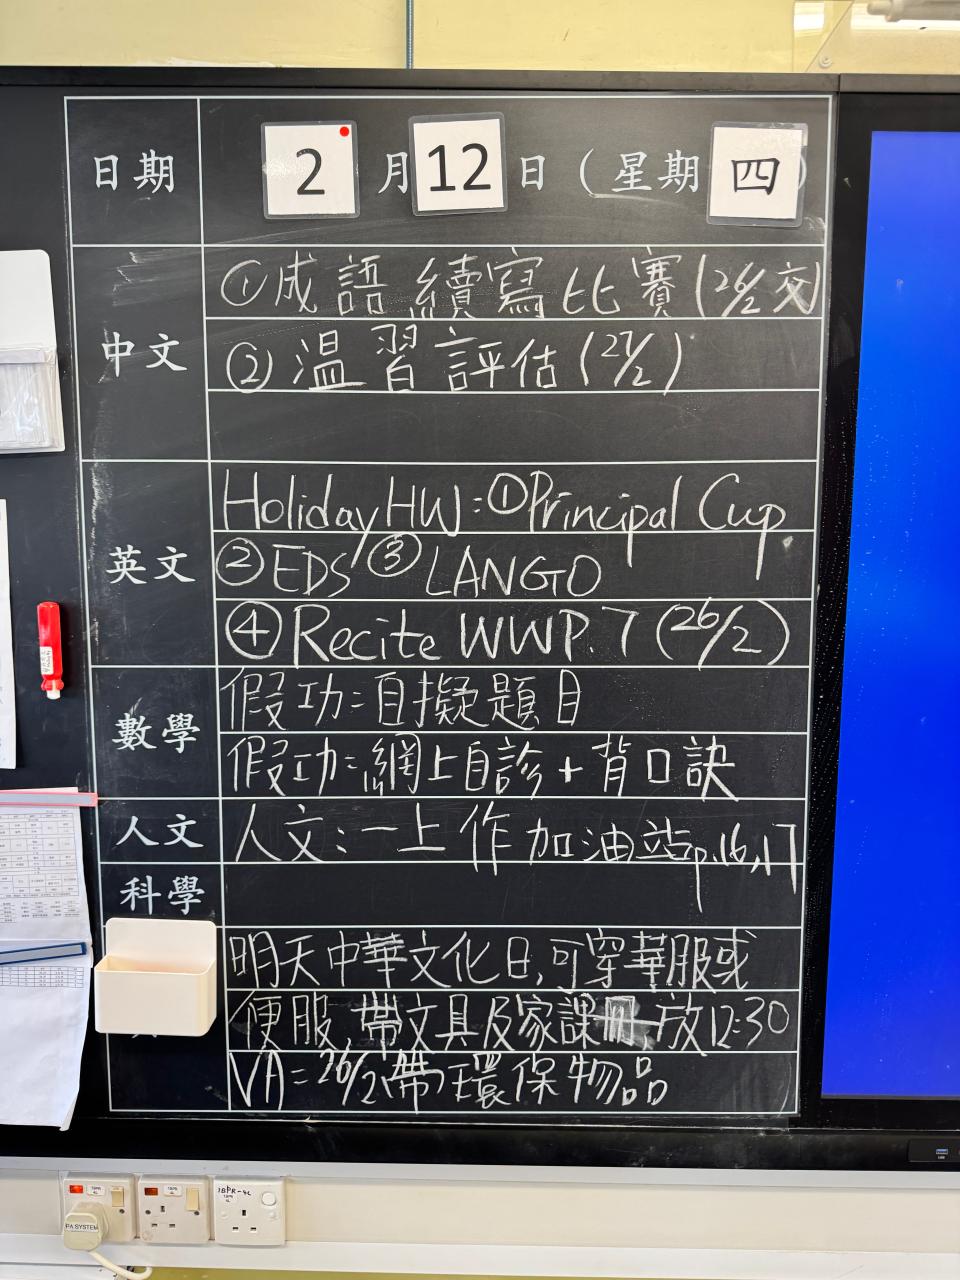 日期 2月12日(星期四)
中文 ①成語續寫比賽(26/2交)
②溫習評估(27/2)
英文 Holiday HW:①Principal Cup
②EDS ③LANGO
④Recite WWP.7 (26/2)
數學 假功:自擬題目
假功:網上自診+背口訣
人文 人文:一上作 加油站p.16,17
科學
明天中華文化日,可穿華服或
便服,帶文具及家課冊,放12:30
VA:26/2帶環保物品
PA SYSTEM
1BPR-4L